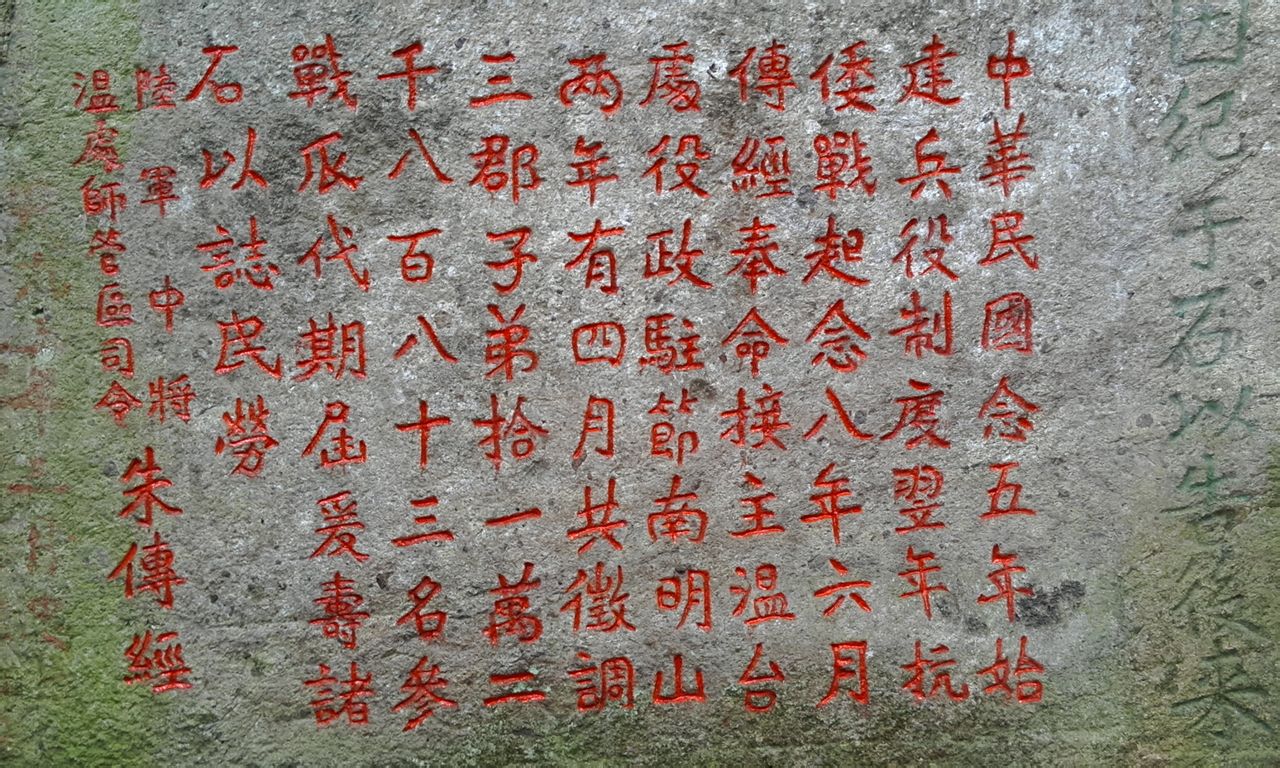 因紀于石以告後來
中華民國念五年始
建兵役制度翌年抗
倭戰起念八年六月
傳經奉命接主温台
處役政駐節南明山
两年有四月共徵調
三郡子弟拾一萬二
千八百八十三名參
戰瓜代期屆爰壽諸
石以誌民勞
陸軍中將
温處師管區司令朱傳經